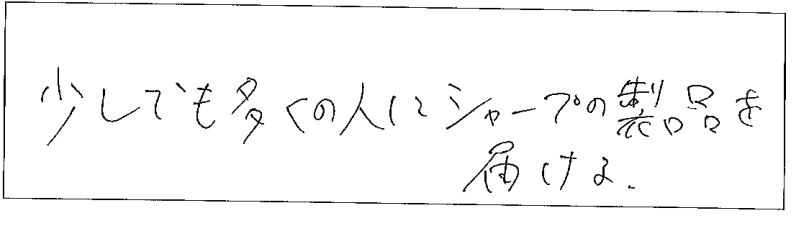 少しでも多くの人にシャープの製品を
届ける.